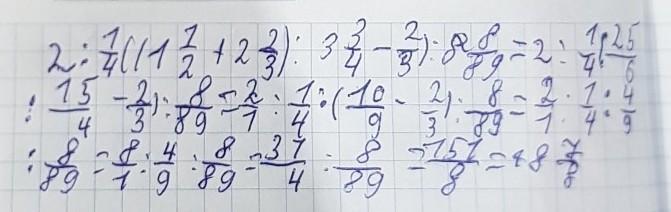 2 : 1/4((1 1/2 + 2 2/3) : 3 3/4 - 2/3) : 8 8/89 = 2 : 1/4 : 25/6
: 15/4 - 2/3) : 8/89 = 2/1 : 1/4 : (10/9 - 2/3) : 8/89 = 2/1 : 1/4 : 4/9
: 8/89 = 8/1 : 4/9 : 8/89 = 37/4 : 8/89 = 151/8 = 18 7/8